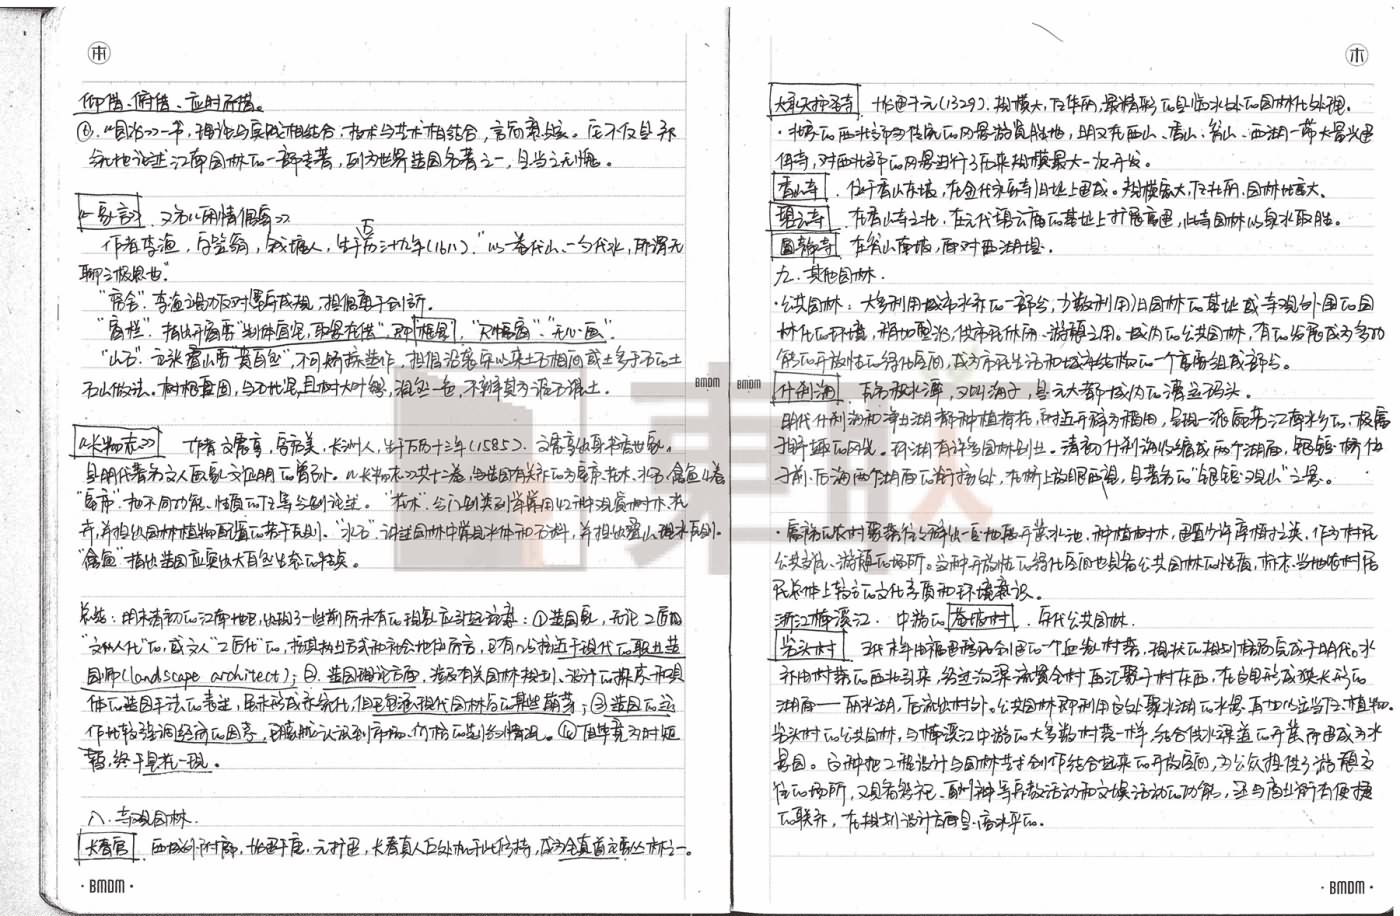 仰借、俯借、应时而借。
⑥.《园冶》一书,理论与实践相结合,技术与艺术相结合,言简意赅。它不仅是系
统地论述江南园林的一部专著,列为世界造园名著之一,是当之无愧。
《一家言》 又名《闲情偶寄》
作者李渔,字笠鸿,钱塘人,生于万历三十九年(1611)."以一卷代山、一勺代水,所谓无
聊之极思也"
"房舍":李渔竭力反对墨守成规,提倡勇于创新。
"窗栏":指出开窗要"制体宜坚,取景在借",即框景,"尺幅窗"、"无心画"
"山石":主张叠山要"贵自然",不可矫揉造作,提倡沿袭宋以来土石相间或土多于石的土
石山做法。树根盘固,与石比坚,且树大叶繁,混然一色,不辨其为谁石谁土.
《长物志》 作者文震亨,字启美,长洲人,生于万历十三年(1585).文震亨出身书香世家,
是明代著名文人画家文征明的曾孙。《长物志》共十二卷,与造园有关系的为室庐、花木、水石、禽鱼4卷
"室庐":把不同功能、性质的
"花木"分门别类列举了常用42种观赏树木、花
卉,并提出园林植物配置的若干原则。"水石":讲述园林中常见水体和石料,并提出叠山理水原则.
"禽鱼":指出造园应突出大自然生态的特点。
总结:明末清初的江南地区,出现了一些前所未有的现象应引起注意:①造园家,无论工匠的
"文人化"的,或文人"工匠化"的,按其执业方式和社会地位而言,已有几分接近于现代的职业造
园师(landscape architect);②.造园理论方面,涉及有关园林规划、设计的探索和具
体的造园手法的表述,虽未形成系统化,但已包涵现代园林学的某些萌芽;③造园的运
作比较强调经济的因素,已意识认识到市场、价格的制约情况。④但毕竟为时短
暂,终于昙花一现。
八.寺观园林.
长春宫 西城外附廓,始建于唐,元扩建,长春真人丘处机于此住持,成为全真道主要丛林之一。
大承天护圣寺 始建于元(1329).规模大,且华丽,最精彩的是临水处的园林化处理。
·北京的西北郊为传统的风景游览胜地,明又在西山、香山、瓮山、西湖一带大量兴建
佛寺,对西北郊的风景进行了历来规模最大一次开发。
香山寺 位于香山东坡,在金代永安寺旧址上建成。规模宏大,佛殿壮丽,园林比重大。
碧云寺 在香山寺之北,在元代碧云庵的基址上扩展重建,此寺园林以泉水取胜。
圆静寺 在瓮山南坡,面对西湖堤.
九.其他园林.
·公共园林:大多利用城市水系的一部分,少数利用旧园林的基址或寺观外围的园
林化的环境,稍加整治,供市民休闲、游憩之用。城内的公共园林,有的发展成为多功
能的开放性的绿化空间,成为市民生活和城市结构的一个重要组成部分。
什刹海 古名积水潭,又叫海子,是元大都城内的漕运码头.
明代什刹海和净业湖都种植荷花,附近开辟为稻田,呈现一派宛若江南水乡的、极富
于野趣的风光。环湖有许多园林别业。清初什刹海收缩成两个湖面,银锭桥位
于前、后海两个湖面的交接处,在桥上放眼西望,是著名的"银锭观山"之景。
·富裕的农村聚落往往辟出一区地段开凿水池,种植树木,建置少许亭榭之类,作为村民
公共交往、游憩的场所。这种开放性的绿化空间也具备公共园林的性质,标志当地农村居
民总体上较高的文化素质和环境意识。
浙江楠溪江.中游的苍坡村.宋代公共园林.
岩头村 五代末年由福建移民创建的一个血缘村落,现状的规划格局完成于明代。水
系由村落的西北引来,经过沟渠流贯全村再汇聚于村东面,在自围形成狭长形的
湖面——丽水湖,后流出村外。公共园林即利用这处聚水湖的水景,再加以适当建置、植物.
岩头村的公共园林,与楠溪江中游的大多数村落一样,结合供水渠道的开凿而建成为水
景园。它种把工程设计与园林艺术创作结合起来的开放空间,为公众提供了游憩交
往的场所,又具备祭祀、酬神等宗教活动和文娱活动的功能,还与商业街有便捷
的联系,在规划设计方面是高水平的.
· BMDM ·
· BMDM ·
BMDM
BMDM